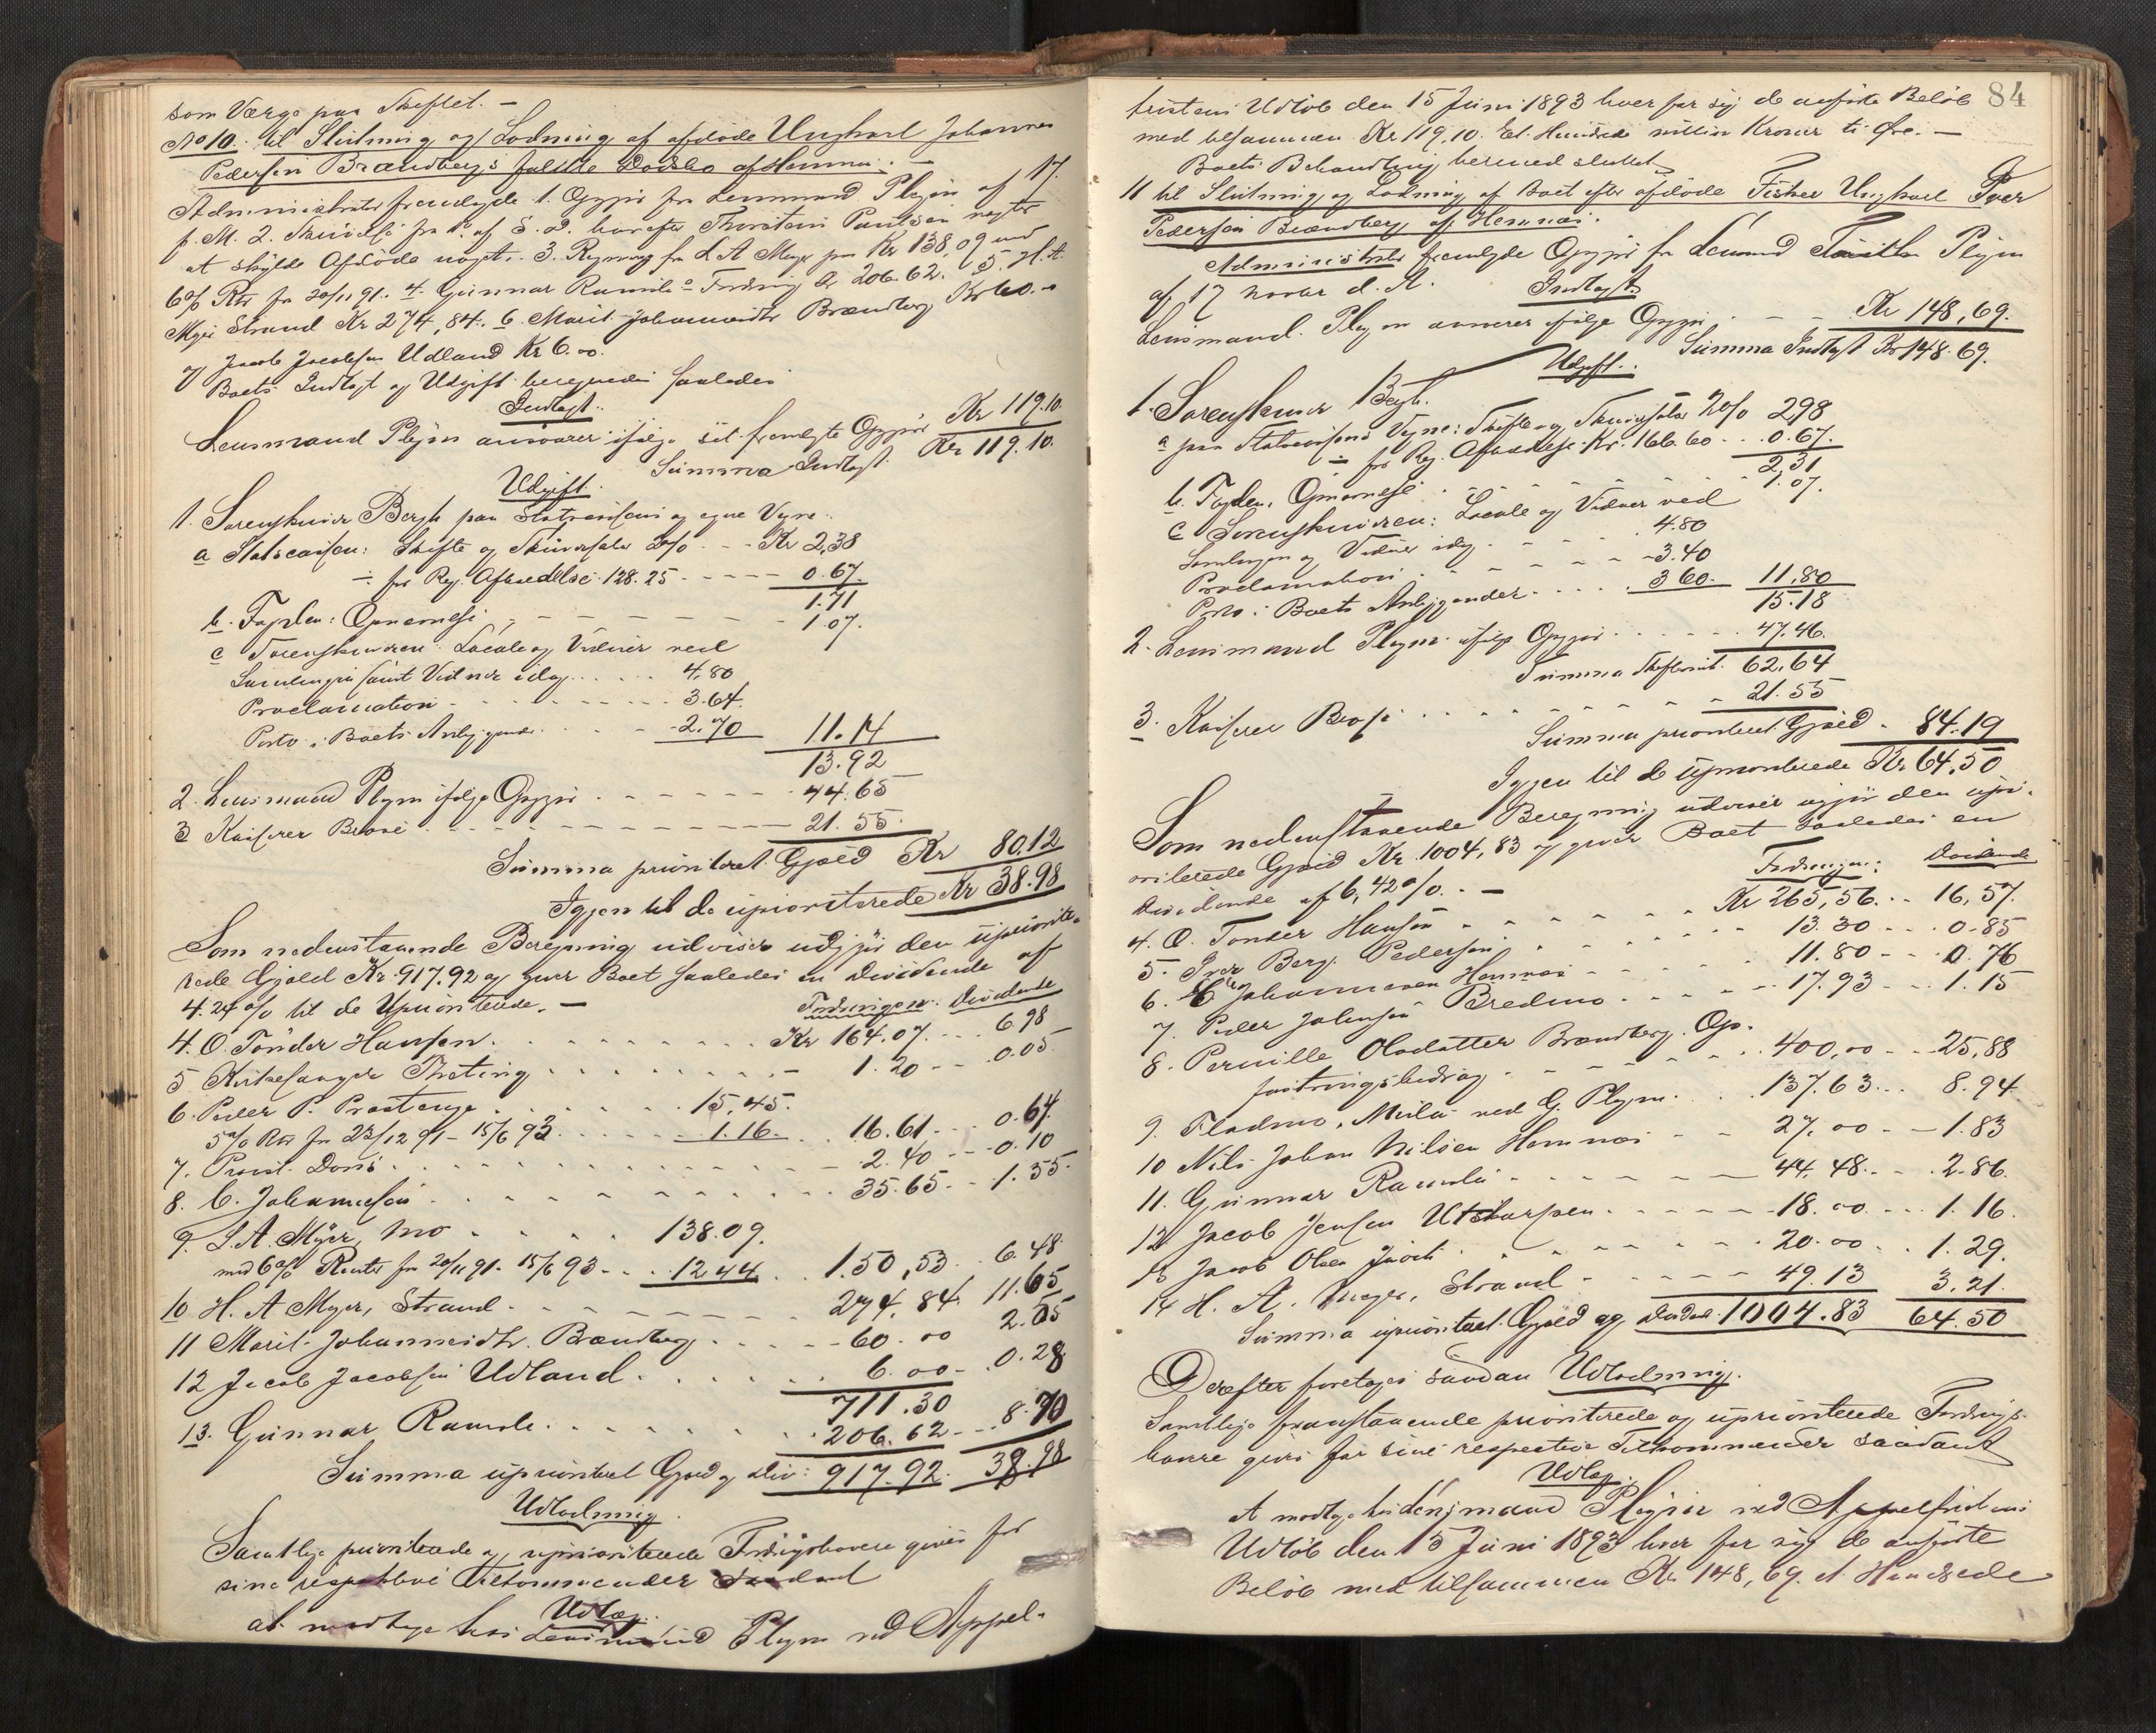 som Værge paa Skiftet. –
No 10. til Slutning og Lodning af afdøde Ungkarl Johannes
Pedersen Brændbergs fallitte Dødsbo af Hemnes. –
Administrator fremlagde 1. Opgjør fra Lensmand Plejm af 17.
f. M. 2. Skrivelse fra af S. D. hvorefter Thorstein Paulsen negter
at skylde Afdøde noget. 3. Regning fra L A Meyer paa Kr 138,09 med
6% Rtr fra 20/11 91. 4. Gunnar Ramsli Fordring Kr 206.62. 5.
Strand Kr 274,84. 6. Marit Johannesdtr Brændberg Kr 60.–
og Jacob Jacobsen Udland Kr 6.00.
Boets Indtægt og Udgift beregnedes saaledes
Indtægt.
Lensmand Plejm ansvarer ifølge sit fremlagte Opgjør Kr 119.10.
Summa Indtægt. Kr 119.10.
Udgift.
1. Sorenskriver Bergh paa Statscassens og egne Vegne.
a Statscassen: Skifte og Skriversalær 2% . . – Kr 2,38
÷ for Reg. Afhændelse 128.25 - - - - - 0.67.
1.71
b. Fogden: Opnævnelse - - - - - - - 1.07.
c Sorenskriveren: Locale og Vidner ved
Samlingen samt Vidner idag . . . . . 4,80
Proclamation - - - - - - - - 3.64.
Porto i Boets Anliggende . . . - 2.70 11.14
13.92
2. Lensmand Plejm ifølge Opgjør - - - - - - 44.65
3 Kasserer Brose - - - - - - - - - 21.55.
Summa prioriteret Gjæld Kr 80.12
Igjen til de upriviterede Kr 38.98
Som nedenstaaende Beregning udviser udgjør den upriorite-
rede Gjæld Kr. 917.92 og giver Boet saaledes en Dividende af
4.24% til de Upriviterede. –
Fordringer: Dividende
4. O. Tønder Hansen . . . . . . . . . Kr 164.07. . . . 6.98
5 Kirkesanger . . . . . . . . – 1.20 - - - 0.05
6. Peder P. . . . . . . . 15,45.
5% Rtr fra 23/12 91 – 15/6 93 . . . . . 1.16. . . 16.61 . . 0.64
7. . . . . . . . . . . . . - 2.40 - - - 0.10
8. C. Johannesen . . . . . . . . . . 35.65. . - 1.55.
9. L. A. Meyer, Mo . . . . . . 138.09.
med 6% Renter fra 20/11 91 – 15/6 93 - . . 12.44 . . 150,53 . . 6.48
10 H. A Meyer, Strand - - - - - - - 274,84 11.65
11 Marit Johannesdtr. Brændberg . . . . . - 60.00 2.55
12 Jacob Jacobsen Udland . . . . . . . 6.00 - . 0.28
711.30
13. Gunnar Ramsli . . . . . . . . . 206.62 - - . 8.70
Summa upriviteret Gjæld og Div: 917.92. 38.98
Udlodning.
Samtlige prioriterede og upriviterede Fordringshavere gives for
sine respektive Tilkommender saadant
Udlæg:
at modtage hos Lensmand Plejm ved Appel-
84
fristens Udløb den 15 Juni 1893 hver for sig de anførte Beløb
med tilsammen Kr 119,10. Et Hundrede nitten Kroner ti Øre. –
Boets Behandling hermed sluttet
11 til Slutning og Lodning af Boet efter afdøde Fisker Ungkarl Iver
Pedersen Brændberg af Hemnes.
Administrator fremlagde Opgjør fra Lensmand Plejm
af 17 Novbr d. A. Indtægt
Lensmand Plejm ansvarer ifølge Opgjør - – – Kr 148,69.
Summa Indtægt Kr 148.69.
Udgift.
1. Sorenskriver Bergh.
a paa Statscassens Vegne: Skifte og Skriversalær 2% 2.98
÷ for Reg. Afhændelse Kr. 166.60 - . . 0.67.
2,31
b. Fogden: Opnævnelse . . . . . . . . 1.07.
c Sorenskriveren: Locale og Vidner ved
Samlingen og Vidner idag . . . . . 4.80
Proclamation . . . . . . . . 3.40
Porto i Boets Anliggender . . . . . 3.60. 11,80
15.18
2. Lensmand Plejm ifølge Opgjør . . . . . . 47.46.
Summa Skifteomk. 62,64
3. Kasserer Brose . . . . . . . . . . 21.55
Summa prioriteret Gjæld - 84.19
Igjen til de Upriviterede Kr. 64,50
Som nedenstaaende Beregning udviser udgjør den upri-
oriterede Gjæld Kr. 1004,83 og giver Boet saaledes en
Dividende af 6,42%. – –
Fordringer: Dividende
4. O. Tønder Hansen . . . . . . . Kr 265,56. . . 16,57.
5. Iver Berg. Pedersen . . . . . . . 13.30 - - . 0.85
6. C. Johannesen Hemnes . . . . . . 11.80 - - . 0.76
7. Peder Johnsen Bredmo . . . . . . 17.93 - - . 1.15
8. Pernille Olsdatter Brændberg. Op-
fostringsbidrag . . . . . . . . 400,00 - - 25,88
9. Fladmo, Misvær ved G. Plejm . . . 137.63 . . . 8.94
10 Nils Johan Nilsen Hemnes - - . 27.00 - - 1.83
11. Gunnar Ramsli - - - - - - 44.48 - . . 2.86.
12 Jacob Jensen Utskarpen . . . . - - 18.00 . . . 1.16.
13 Jacob Olsen . . . . . . . 20.00 . . 1.29.
14 H. A. Meyer, Strand - - - - - - 49.13 3,21.
Summa upriviteret Gjæld og Dividende 1004.83 64.50
Derefter foretoges saadan Udlodning.
Samtlige foranstaaende prioriterede og upriviterede Fordrings-
havere gives for sine respective Tilkommender saadant
Udlæg.
At modtage hos Lensmand Plejm ved Appelfristens
Udløb den 15 Juni 1893 hver for sig de anførte
Beløb med tilsammen Kr 148,69. et Hundrede